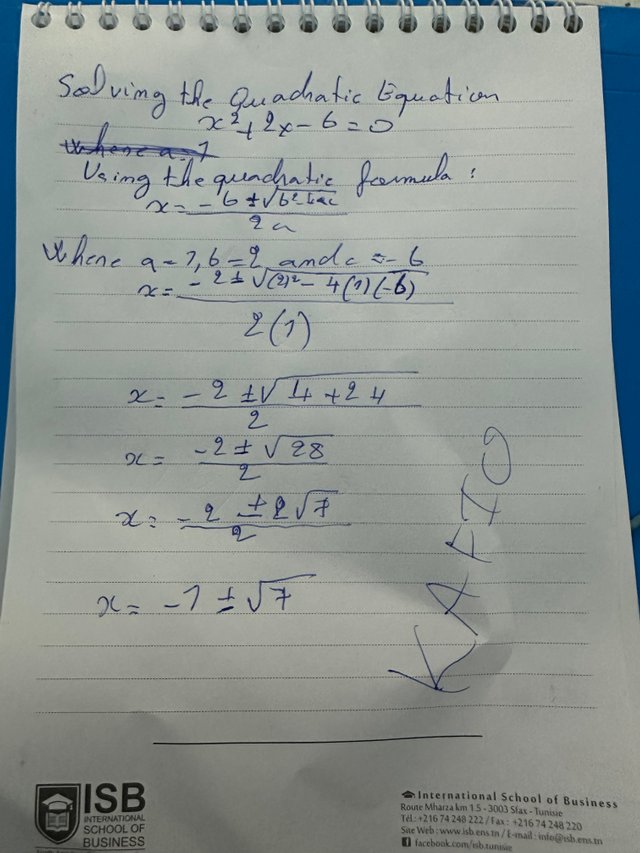 Solving the Quadratic Equation
x² + 2x - 6 = 0
Where a = 1
Using the quadratic formula :
x = -b ± √b² 4ac / 2a
Where a = 1, b = 2 and c = - 6
x = -2 ± √(2)² - 4(1)(-6) / 2(1)
x = -2 ± √4 + 24 / 2
x = -2 ± √28 / 2
x = -2 ± 2√7 / 2
x = -1 ± √7
KAFIO
ISB
INTERNATIONAL
SCHOOL OF
BUSINESS
International School of Business
Route Mharza km 1.5 - 3003 Sfax - Tunisie
Tél.: +216 74 248 222 / Fax : +216 74 248 220
Site Web : www.isb.ens.tn / E-mail : info@isb.ens.tn
facebook.com/isb.tunisie